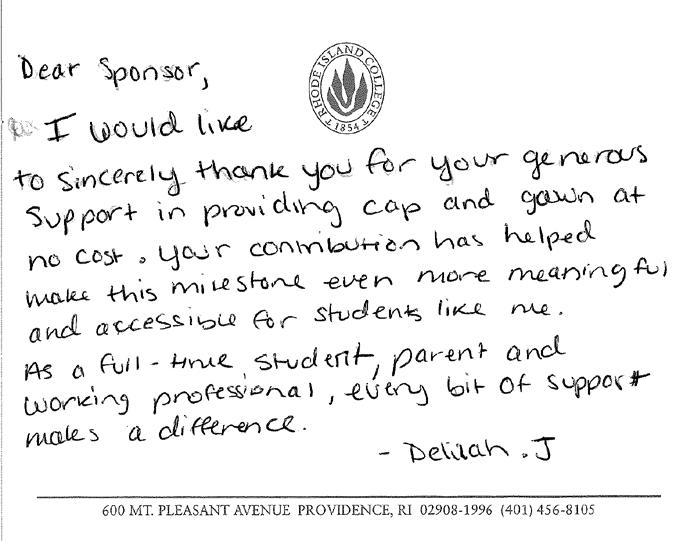 Dear Sponsor,
RHODE ISLAND COLLEGE
1854
I would like
to sincerely thank you for your generous
support in providing cap and gown at
no cost. Your contribution has helped
make this milestone even more meaningful
and accessible for students like me.
As a full-time student, parent and
working professional, every bit of support
makes a difference.
- Delilah. J
600 MT. PLEASANT AVENUE PROVIDENCE, RI 02908-1996 (401) 456-8105